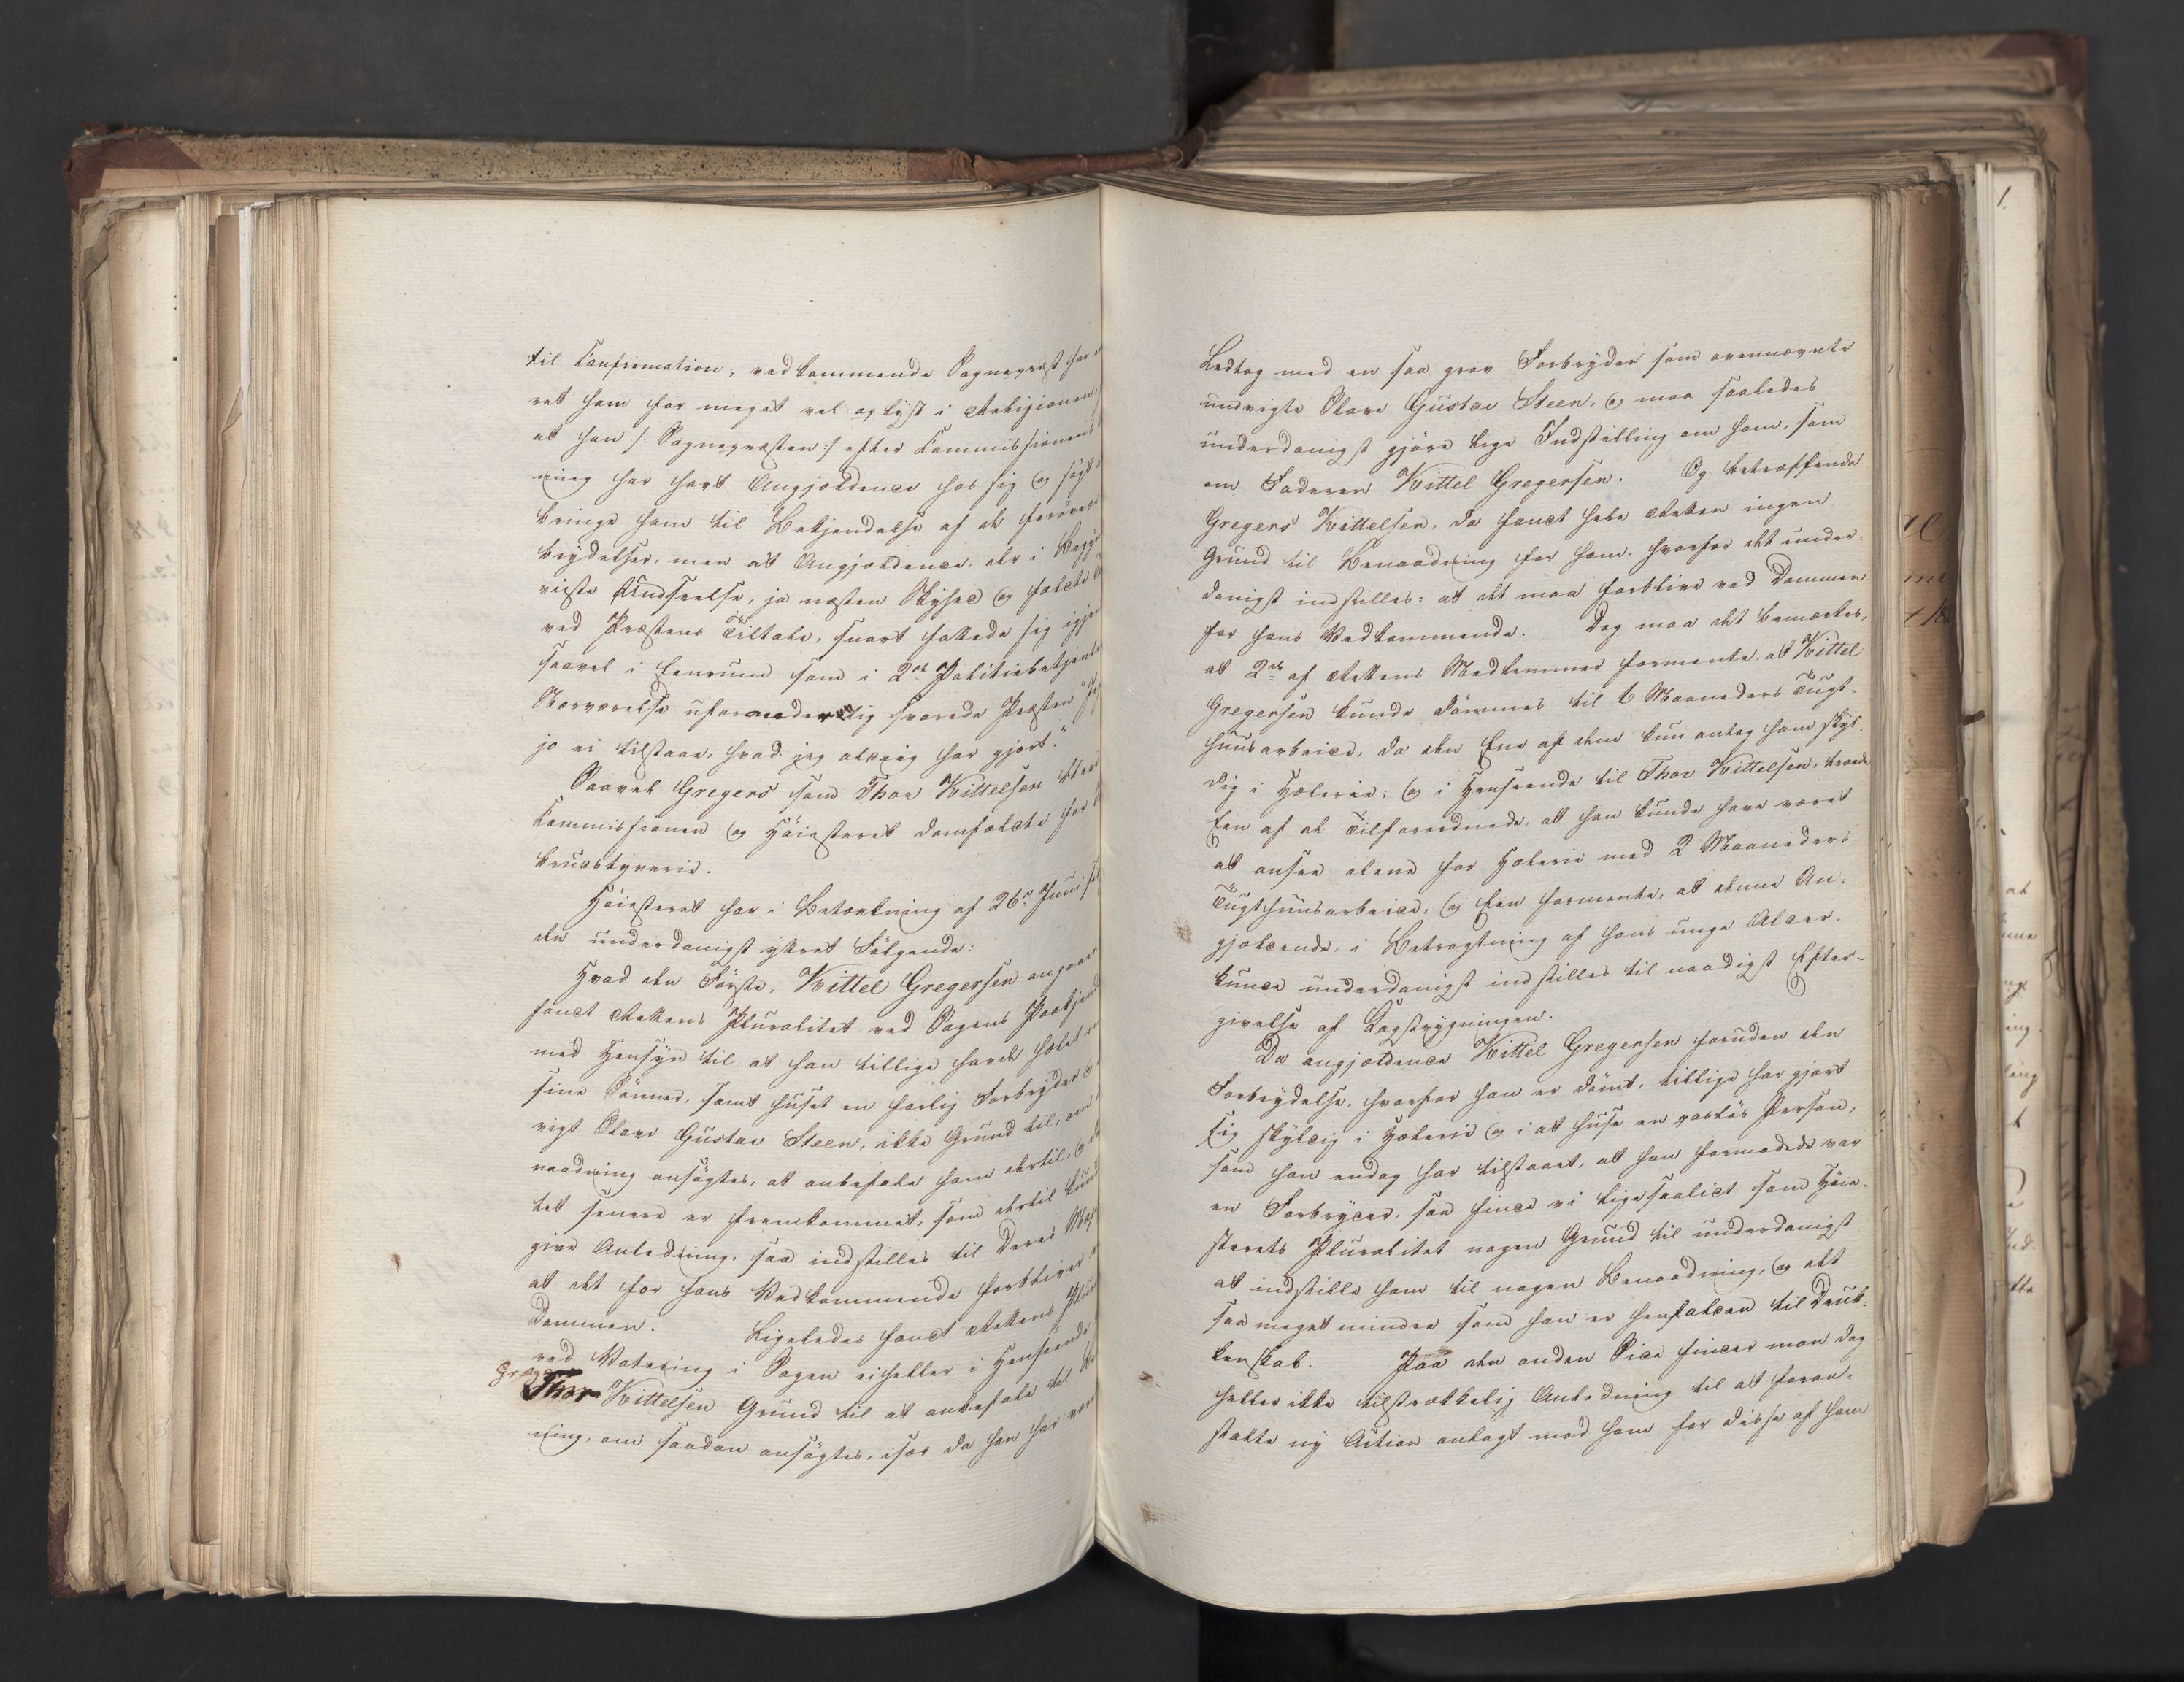 til Confirmation; vedkommende Sogneprest har
ret ham for meget vel oplyst i Religionen,
at han /: Sognepresten :/ efter Kommissionens
ning har havt Angjeldende hos sig og søgt
bringe ham til Bekjendelse af de forøvede
brydelser, men at Angjeldende, der i Begyn
viste Undseelse, ja næsten Skyhed og foldte
ved Præstens Tiltale, snart fattede sig igjen
saavel i Eenrum som i 2de Politiebetjente
Nærværelse uforanderlig svarede Præsten "Jeg
jo ei tilstaae, hvad jeg aldrig har gjort."
Saavel Gregers som Thor Kittelsen blev
Kommissionen og Høiesteret domfældte for
brudstyverie.
Høiesteret har i Betænkning af 26de Juni
den underdanigst yttret Følgende:
Hvad den Første, Kittel Gregersen angaaer
fandt Rettens Pluralitet ved Sagens Paakjend
med Hensyn til at han tillige havde hælet
sine Sønner, samt huset en farlig Forbryder
vigt Slave Gustav Steen, ikke Grund til, om
naadning ansøgtes, at anbefale ham dertil, og
tet senere er fremkommet, som dertil kunde
give Anledning, saa indstilles til Deres Maj
at det for hans Vedkommende forbliver
Dommen. Ligeledes fandt Rettens Plur
ved Votering i Sagen eiheller i Henseende
Gregers
Thor Kittelsen Grund til at anbefale til
ning, om saadan ansøgtes, især da han har været
Ledtog med en saa grov Forbryder som ovennævnte
undvigte Slave Gustav Steen, og maa saaledes
underdanigst gjøre lige Indstilling om ham, som
om Faderen Kittel Gregersen. Og betreffende
Gregers Kittelsen, da fandt hele Retten ingen
Grund til Benaadning for ham, hvorfor det under-
danigst indstilles: at det maa forblive ved Dommen
for hans Vedkommende. Dog maa det bemærkes,
at 2de af Rettens Medlemmer formente, at Kittel
Gregersen kunde dømmes til 6 Maaneders Tugt-
huusarbeide, da den Ene af dem kun antog ham skyl-
dig i Hælerie; og i Henseende til Thor Kittelsen, troede
Een af de Tilforordnede, at han kunde have været
at ansee alene for Hælerie med 2 Maaneders
Tugthuusarbeide, og Een formente, at denne An-
gjeldende, i Betragtning af hans unge Alder,
kunde underdanigst indstilles til naadigst Efter-
givelse af Kagstrygningen.
Da angjeldende Kittel Gregersen foruden den
Forbrydelse, hvorfor han er dømt, tillige har gjort
sig skyldig i Hælerie og i at huse en pasløs Person,
som han endog har tilstaaet, at han formodede var
en Forbryder, saa finde vi ligesaalidt som Høie-
sterets Pluralitet nogen Grund til underdanigst
at indstille ham til nogen Benaadning, og det
saa meget mindre som han er henfalden til Druk-
kenskab. Paa den anden Side finder man dog
heller ikke tilstrækkelig Anledning til at foran-
stalte ny Action anlagt mod ham for disse af ham